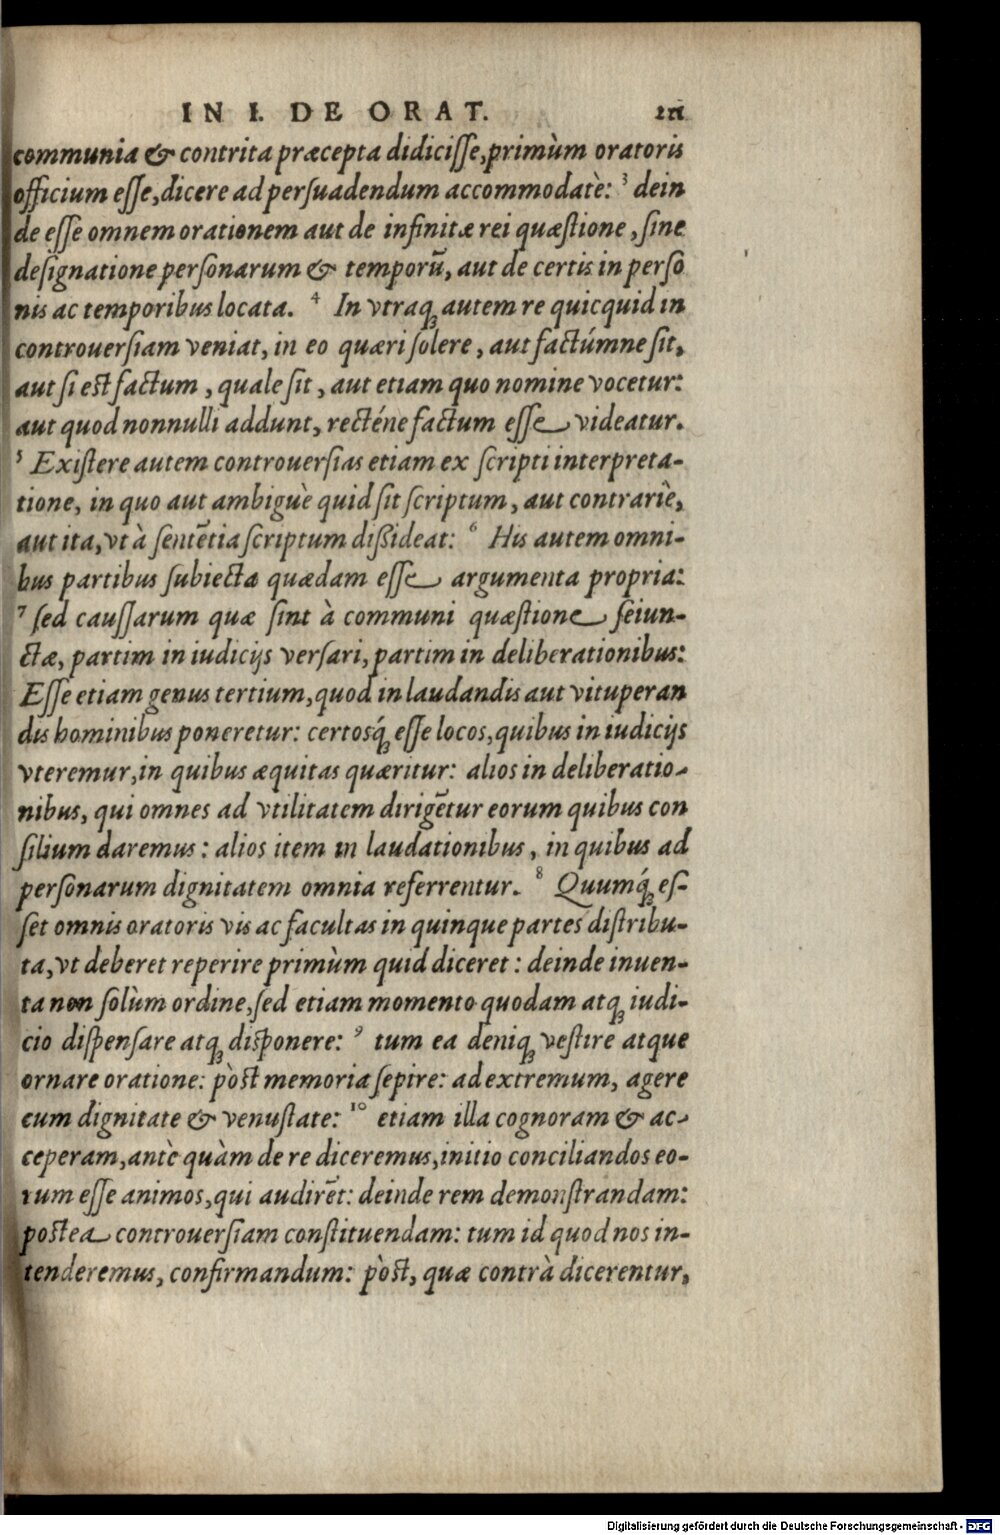 IN I. DE ORAT. 211
communia & contrita præcepta didicisse, primùm oratoris
officium esse, dicere ad persuadendum accommodatè: ³ dein
de esse omnem orationem aut de infinitæ rei quæstione, sine
designatione personarum & temporū, aut de certis in perso
nis ac temporibus locata. ⁴ In vtraq; autem re quicquid in
controuersiam veniat, in eo quæri solere, aut factúmne sit,
aut si est factum, quale sit, aut etiam quo nomine vocetur:
aut quod nonnulli addunt, recténe factum esse videatur.
⁵ Existere autem controuersias etiam ex scripti interpreta-
tione, in quo aut ambiguè quid sit scriptum, aut contrariè,
aut ita, vt à sentētia scriptum dißideat: ⁶ His autem omni-
bus partibus subiecta quædam esse argumenta propria:
⁷ sed caussarum quæ sint à communi quæstione seiun-
ctæ, partim in iudicijs versari, partim in deliberationibus:
Esse etiam genus tertium, quod in laudandis aut vituperan
dis hominibus poneretur: certosq́; esse locos, quibus in iudicijs
vteremur, in quibus æquitas quæritur: alios in deliberatio-
nibus, qui omnes ad vtilitatem dirigētur eorum quibus con
silium daremus: alios item in laudationibus, in quibus ad
personarum dignitatem omnia referrentur. ⁸ Quumq́; es-
set omnis oratoris vis ac facultas in quinque partes distribu-
ta, vt deberet reperire primùm quid diceret: deinde inuen-
ta non solùm ordine, sed etiam momento quodam atq; iudi-
cio dispensare atq; disponere: ⁹ tum ea deniq; vestire atque
ornare oratione: pòst memoria sepire: ad extremum, agere
cum dignitate & venustate: ¹⁰ etiam illa cognoram & ac-
ceperam, antè quàm de re diceremus, initio conciliandos eo-
rum esse animos, qui audirēt: deinde rem demonstrandam:
postea controuersiam constituendam: tum id quod nos in-
tenderemus, confirmandum: pòst, quæ contrà dicerentur,
Digitalisierung gefördert durch die Deutsche Forschungsgemeinschaft - DFG